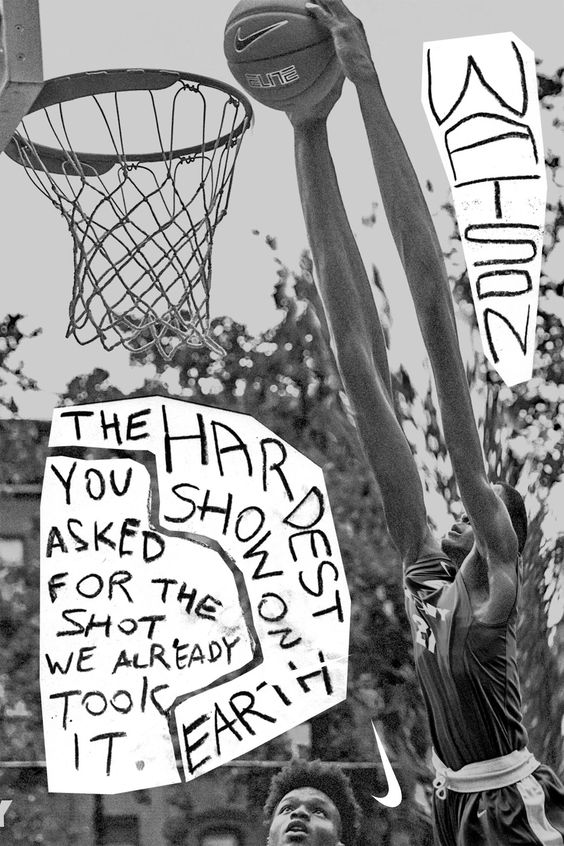 ELITE
WATSON
THE HARDEST
SHOW ON
EARTH
YOU
ASKED
FOR THE
SHOT
WE ALREADY
TOOK
IT.
Y